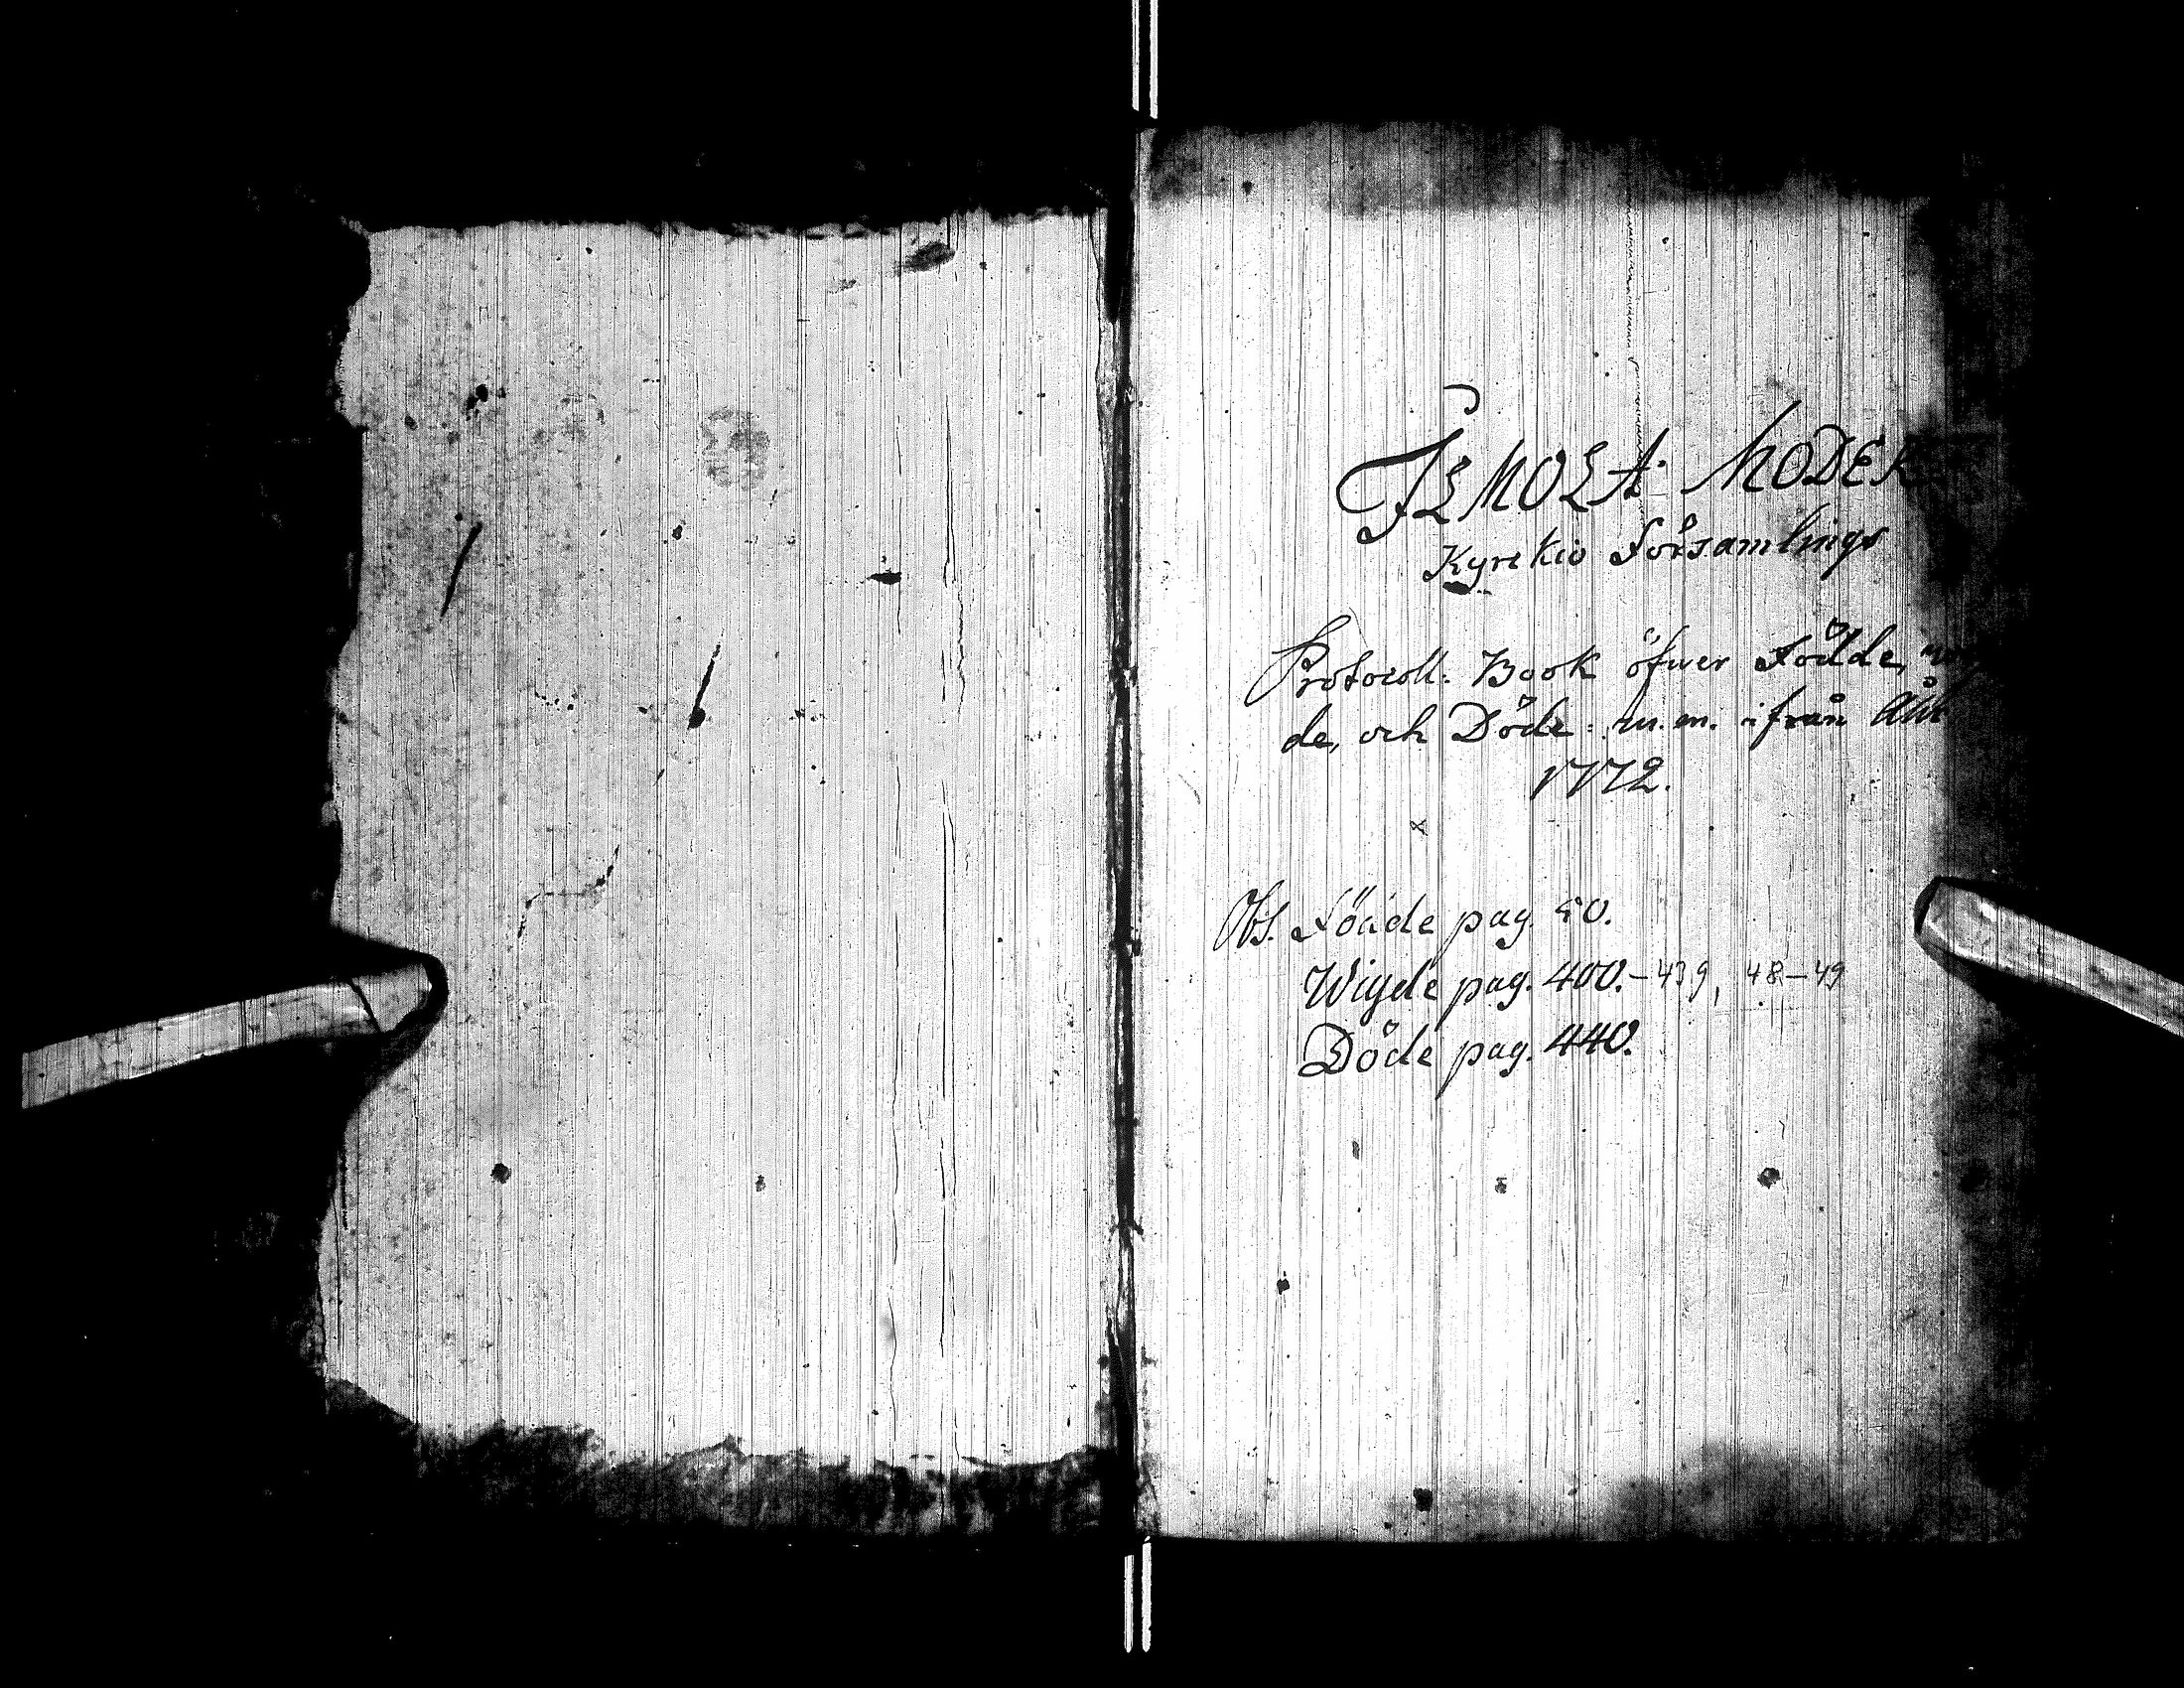 ILMOLA MODER
Kyrckio Församlings
Protocoll. Book öfwer Födde,
de, och Döde. m.m. ifrån Åhr
1772.
Obs. Födde pag. 50.
Wigde pag. 400.-439, 48-49
Döde pag. 440.